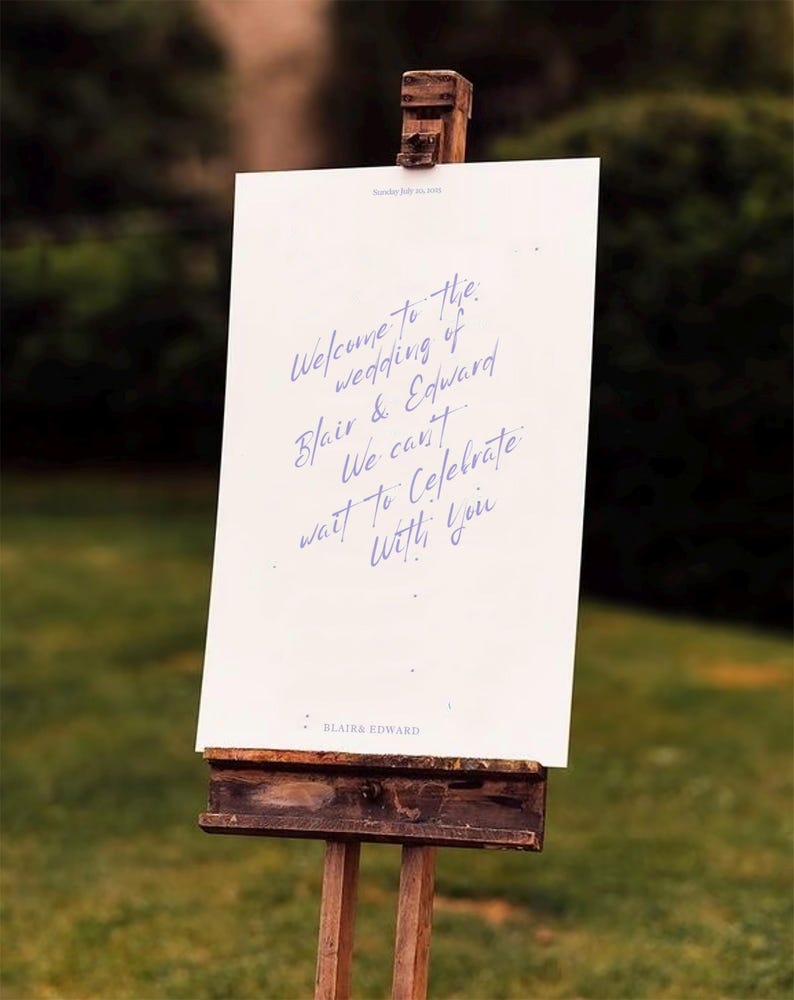 Sunday July 20, 2025
Welcome to the
wedding of
Blair & Edward
We can't
wait to Celebrate
With You
BLAIR& EDWARD